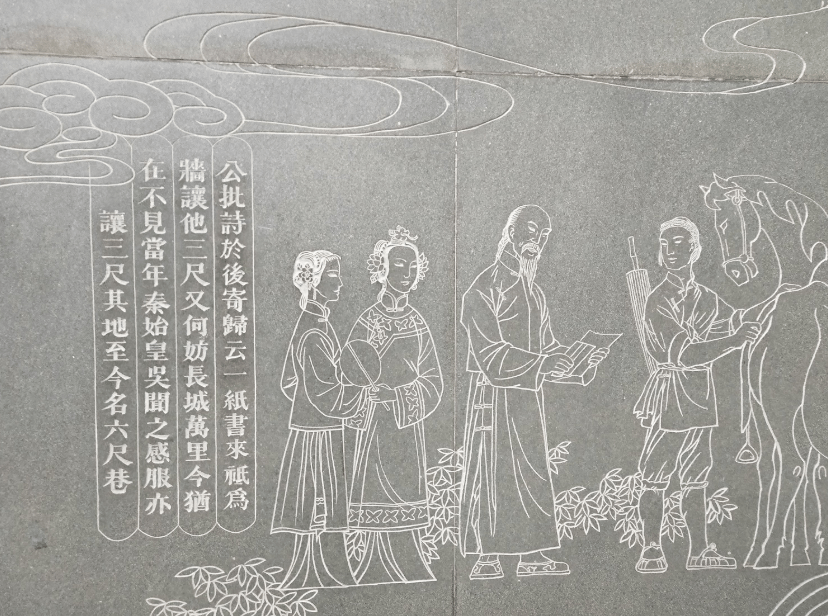 公批詩於後寄歸云一紙書來祗為
牆讓他三尺又何妨長城萬里今猶
在不見當年秦始皇吳聞之感服亦
讓三尺其地至今名六尺巷